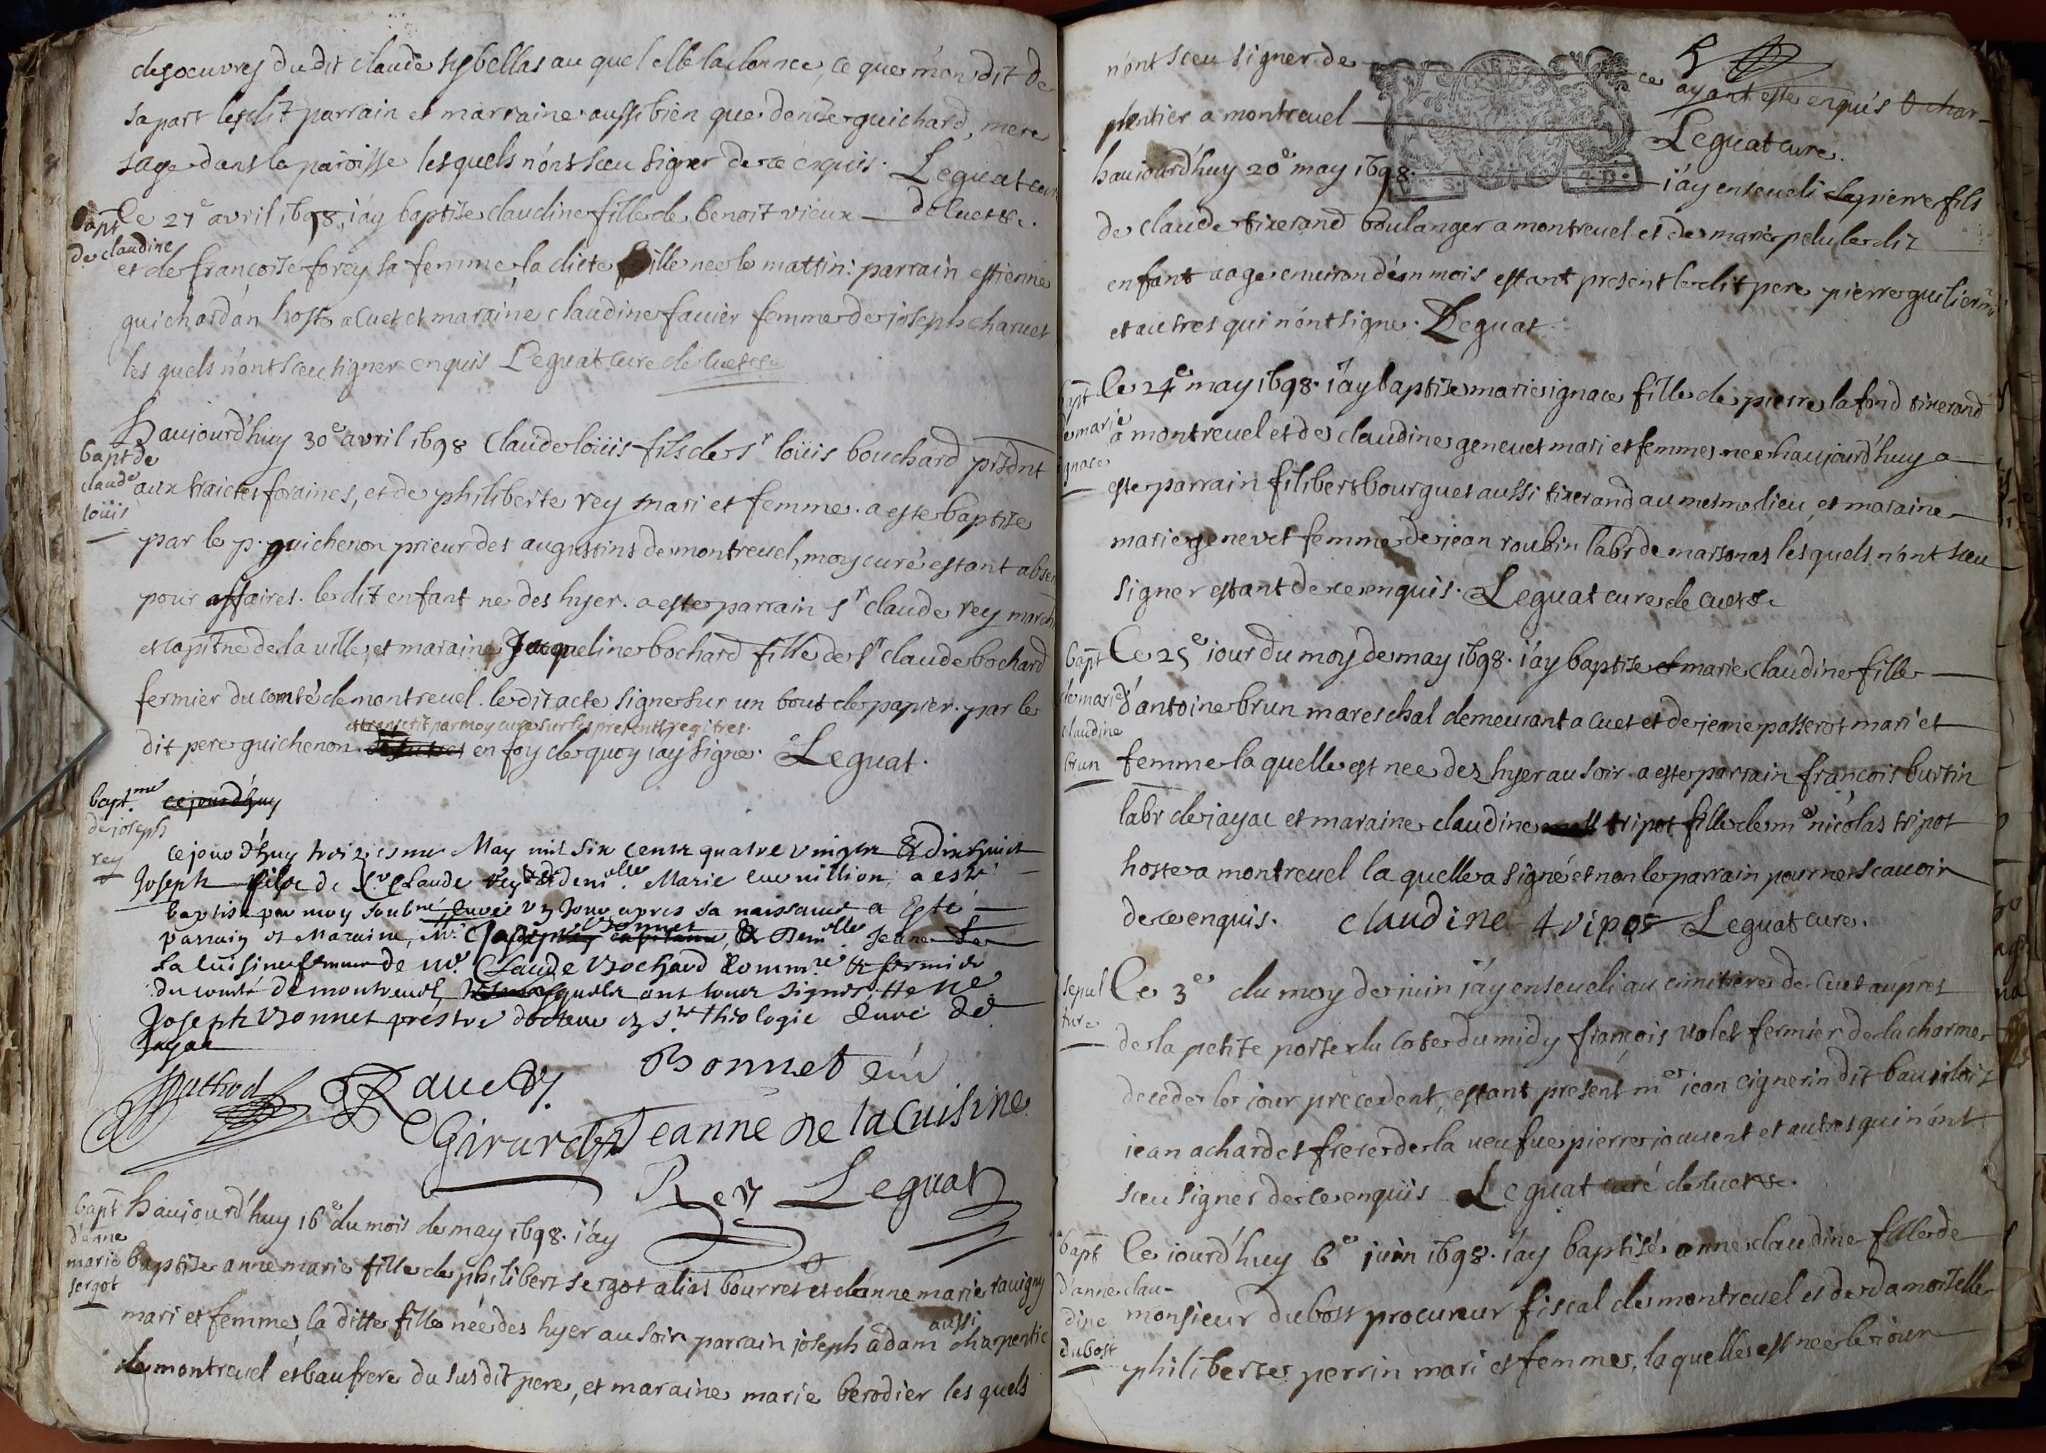 des oeuvres du dit claude sybellas au quel elle la donnee, ce que m'on dit de
sa part lesdit parrain et marraine aussi bien que denise guichard, mere
sage dans la paroisse lesquels n'ont sceu signer de ce enquis. Leguat curé
de cuet &c.
bapt de claudine
Le 27e avril 1698, j'ay baptise claudine fille de benoit vieux
et de francoise forey sa femme, la dicte fille nee le mattin: parrain estienne
guichardan hoste a Cuet et maraine claudine favier femme de joseph charvet
les quels n'ont sceu signer enquis Leguat cure de cuet &c
bapt de claude loüis
haujourd'huy 30e avril 1698 Claude loüis fils de sr loüis bouchard presdnt
aux traictes foraines, et de philiberte rey mari et femme. a este baptise
par le p. guichenon prieur des augustins de montrevel, moy curé estant absent
pour affaires. le dit enfant ne des hyer. a este parrain sr claude rey march
et capitne de la ville, et maraine Jacqueline bochard fille de sr claude bochard
fermier du comté de montrevel. le dit acte signe sur un bout de papier par le
et transcrit par moy cure sur les presents regitres.
dit pere guichenon. en foy de quoy j'ay signe. Leguat.
bapt.me de joseph rey
cejourd'huy
cejourd'huy troiziesme May mil six cents quatre vingts & dixhuict
Joseph fils de Sr. Claude Rey & de dem.olle Marie cuvillion, a esté
baptisé par moy soubné, curé un jour apres sa naissance a Esté
parrain et Maraine, Mr. Joseph Bonnet & Dem.olle Jeanne De
la cuisine femme de Mr. Claude Bochard comm.re & fermier
du comté de montrevel, lesquels ont tous signés, Me
Joseph Bonnet prestre docteur en ste theologie curé de
Jayac
Bonnet curé
Girard
Jeanne de la cuisine
Rey Leguat
bapt d'anne marie sergot
haujourd'huy 16e du mois de may 1698. j'ay
baptise anne marie fille de philibert sergot alias bourret et d'anne marie ravigny
mari et femme, la ditte fille née des hyer au soir parrain joseph adam aussi charpentie
de montrevel et baufrere du susdit pere, et maraine marie berodier les quels
n'ont sceu signer de ce ayant este enquis & char-
pentier a montrevel Leguat cure.
haujourd'huy 20e may 1698. j'ay enseveli pierre fils
de claude tixerand boulanger a montrevel et de marie pelu le dit
enfant aage environ d'un mois estant present le dit pere pierre guilierm
et autres qui n'ont signe. Leguat.
bapt de marie ignace
Le 24e may 1698. j'ay baptise marie ignace fille de pierre la fond tixerand
a montrevel et de claudine genevet mari et femme nee haujourd'huy a
este parrain filibert bourguet aussi tixerand au mesme lieu, et maraine
marie genevet femme de jean roubin labr de marsonas les quels n'ont sceu
signer estant de ce enquis. Leguat cure de cuet &c
bapt de marie claudine brun
Le 25e jour du moy de may 1698. j'ay baptise marie claudine fille
d'antoine brun mareschal demeurant a cuet et de jeane passerot mari et
femme la quelle est nee dez hyer au soir. a este parrain francois burtin
labr de jayac et maraine claudine tripot fille de me nicolas tripot
hoste a montrevel la quelle a signé et non le parrain pour ne scavoir
de ce enquis. claudine tripot Leguat cure.
sepulture
Le 3e du moy de juin j'ay enseveli au cimitiere de Cuet aupres
de la petite porte du coste du midy françois volet fermier de la charme
decede le jour precedent, estant present me jean cignerin dit
jean achard et frere de la veufve pierre jouvent et autres qui n'ont
sceu signer de ce enquis Leguat curé de cuet &c.
bapt d'anne claudine dubost
Ce jourd'huy 6e juin 1698. j'ay baptisé anne claudine fille de
monsieur dubost procureur fiscal de montrevel et de damoiselle
philiberte perrin mari et femme, laquelle est nee le jour